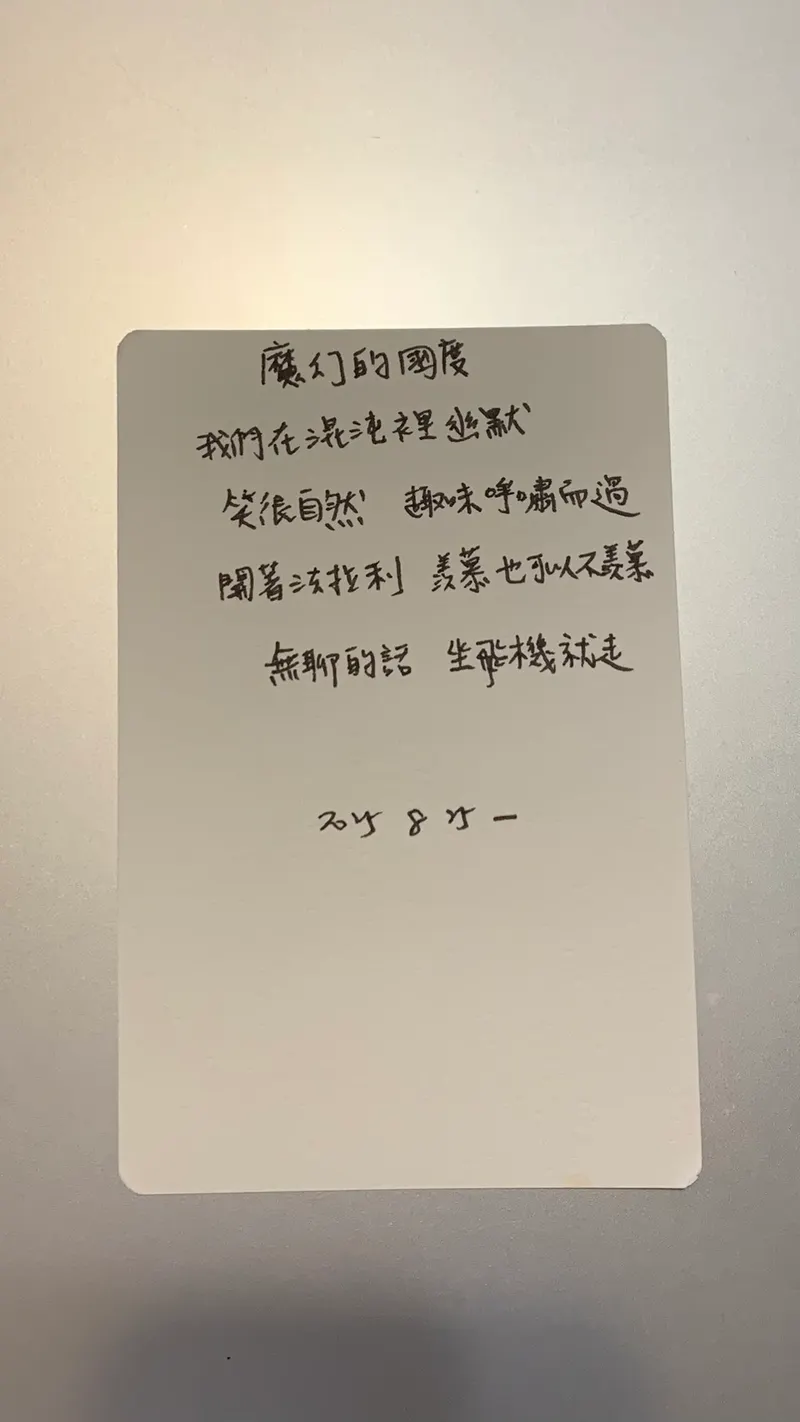 魔幻的國度
我們在混沌裡幽默
笑很自然 趣味呼嘯而過
開著法拉利 羨慕也可以不羨慕
無聊的話 坐飛機就走
2025 8 25 一